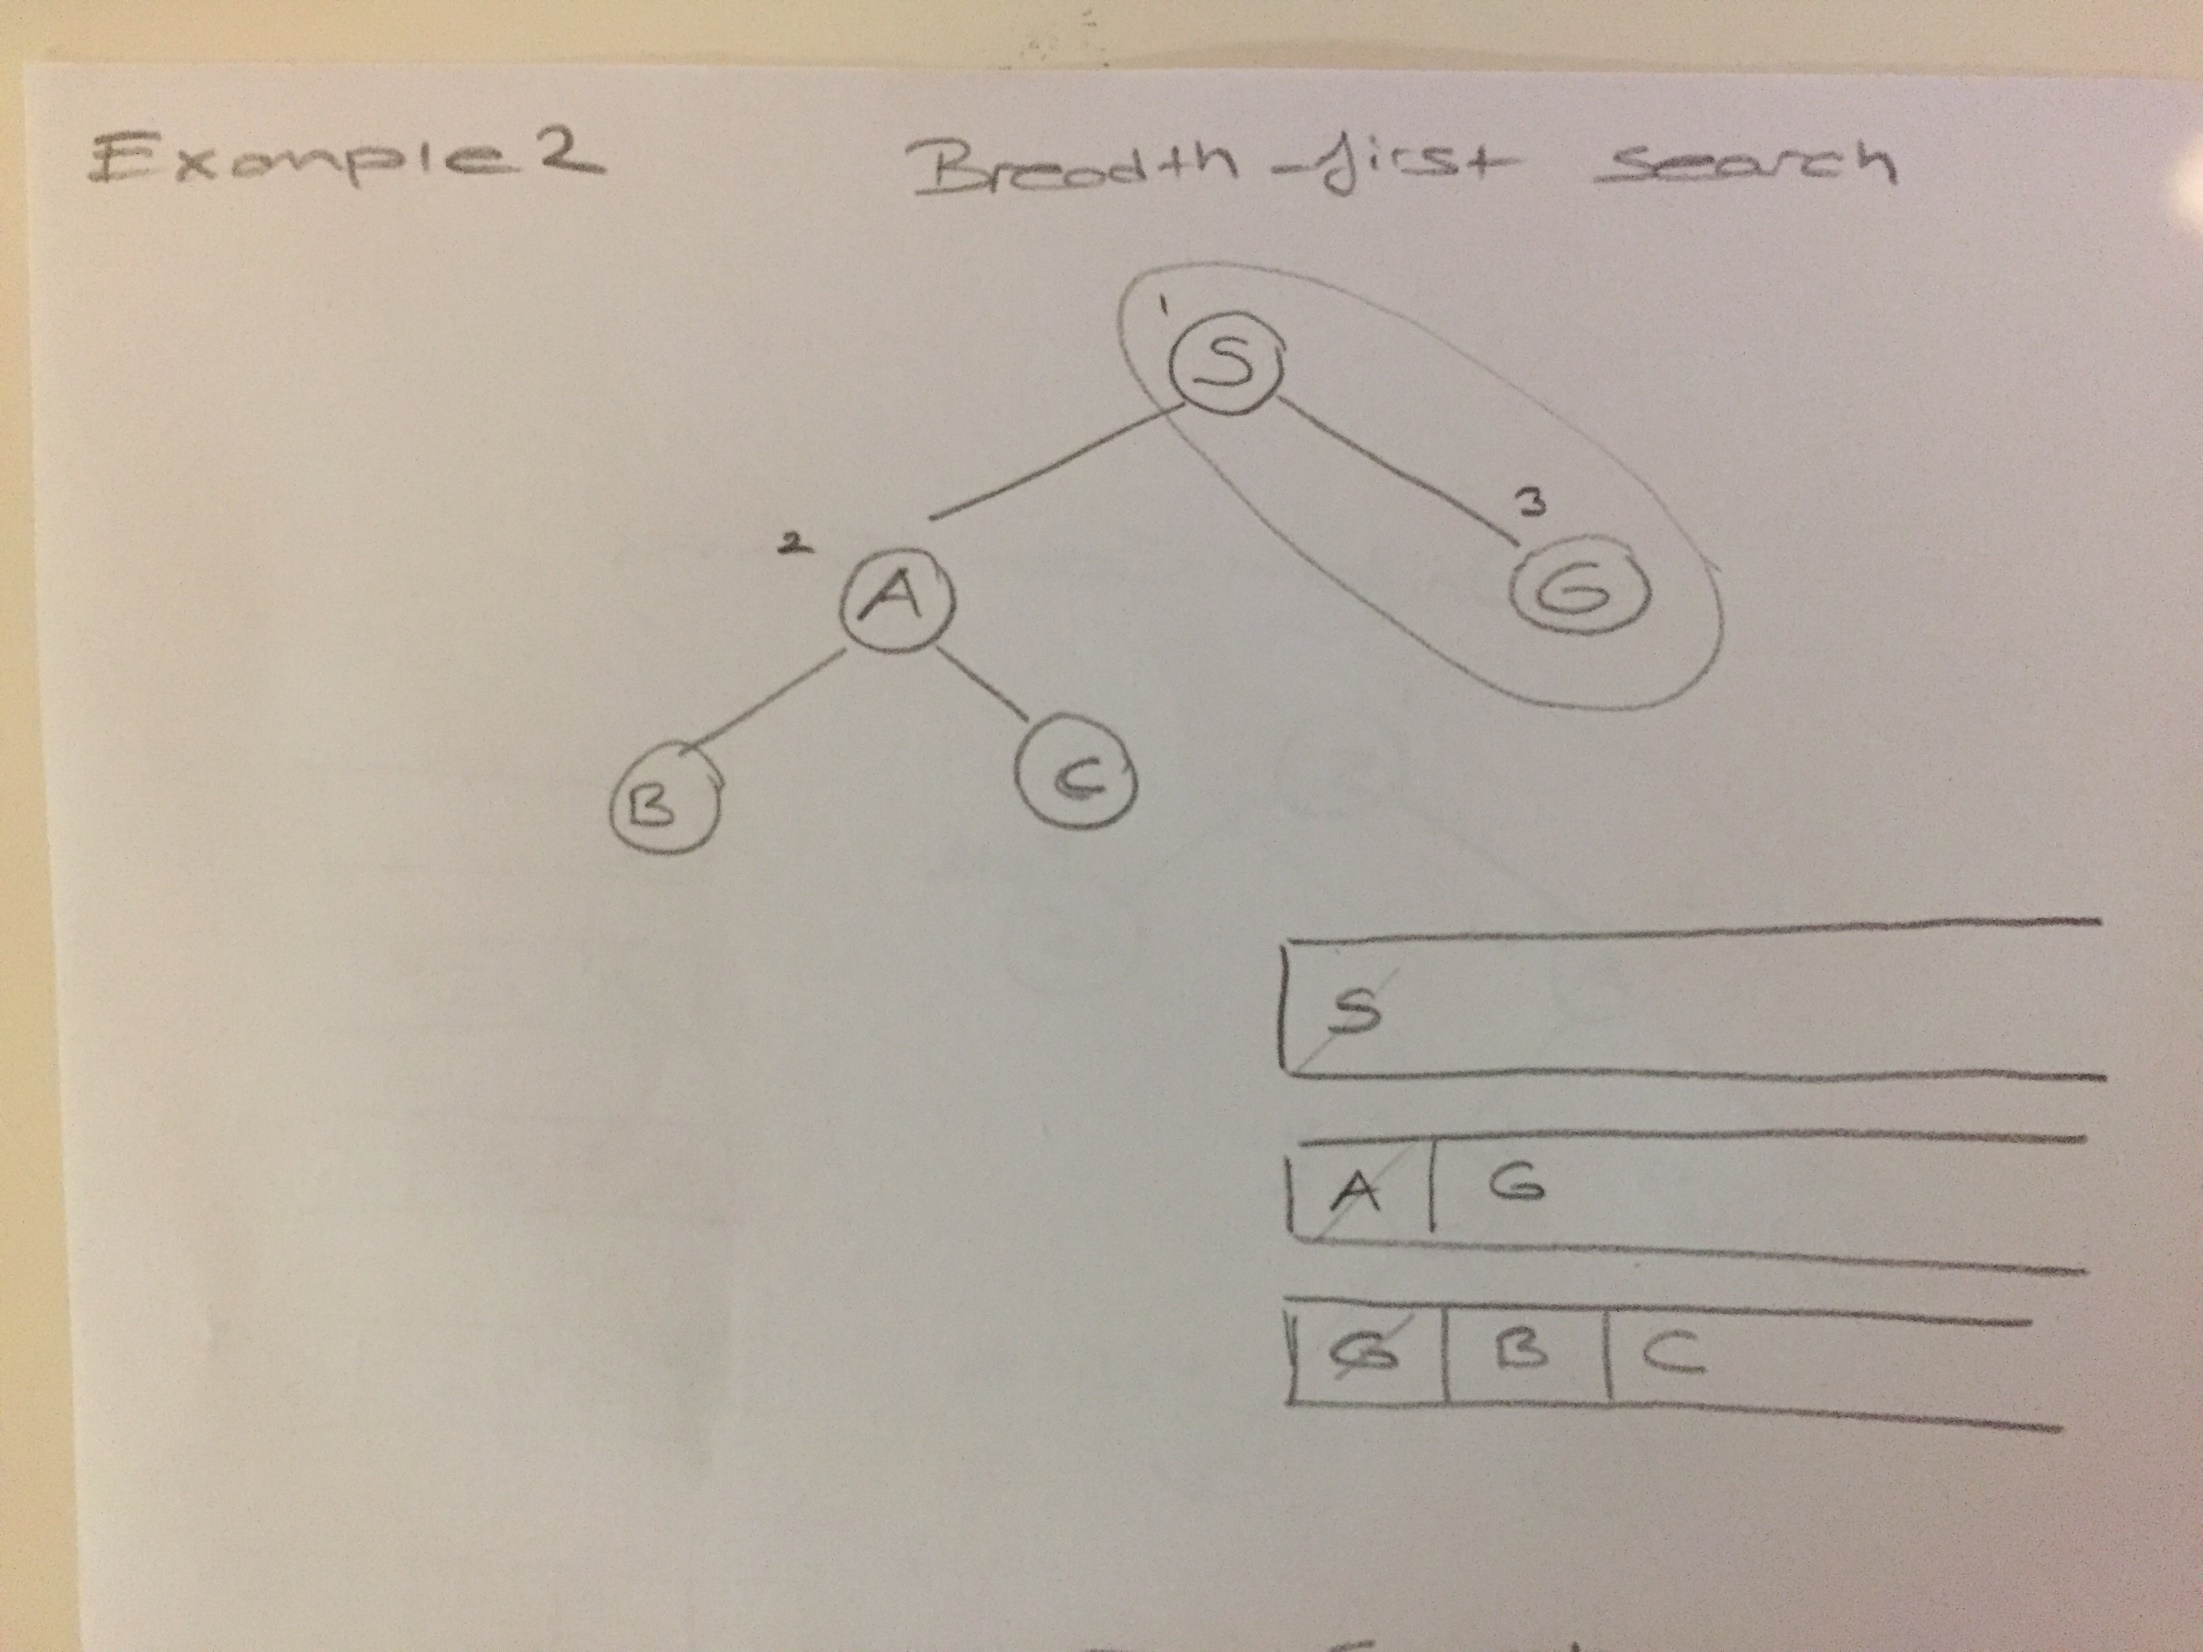 Example 2 Breadth-first search
1
S
3
2
A G
B C
S
A G
G B C